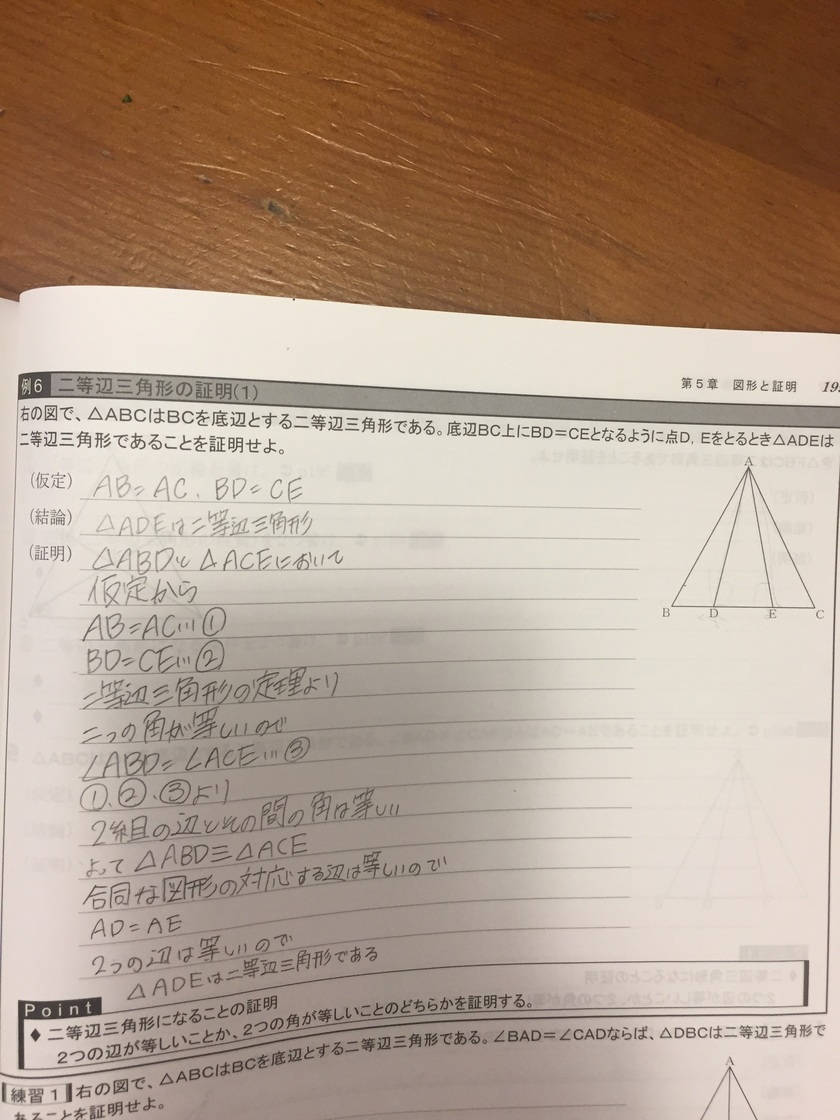 第5章 図形と証明 19
例6 二等辺三角形の証明(1)
右の図で、△ABCはBCを底辺とする二等辺三角形である。底辺BC上にBD=CEとなるように点D, Eをとるとき△ADEは
二等辺三角形であることを証明せよ。
(仮定) AB=AC、BD=CE
(結論) △ADEは二等辺三角形
(証明) △ABDと△ACEにおいて
仮定から
AB=AC…①
BD=CE…②
二等辺三角形の定理より
二つの角が等しいので
∠ABD=∠ACE…③
①、②、③より
2組の辺とその間の角は等しい
よって△ABD≡△ACE
合同な図形の対応する辺は等しいので
AD=AE
2つの辺は等しいので
△ADEは二等辺三角形である
A
B D E C
Point
♦ 二等辺三角形になることの証明
2つの辺が等しいことか、2つの角が等しいことのどちらかを証明する。
練習1 右の図で、△ABCはBCを底辺とする二等辺三角形である。∠BAD=∠CADならば、△DBCは二等辺三角形で
あることを証明せよ。
A